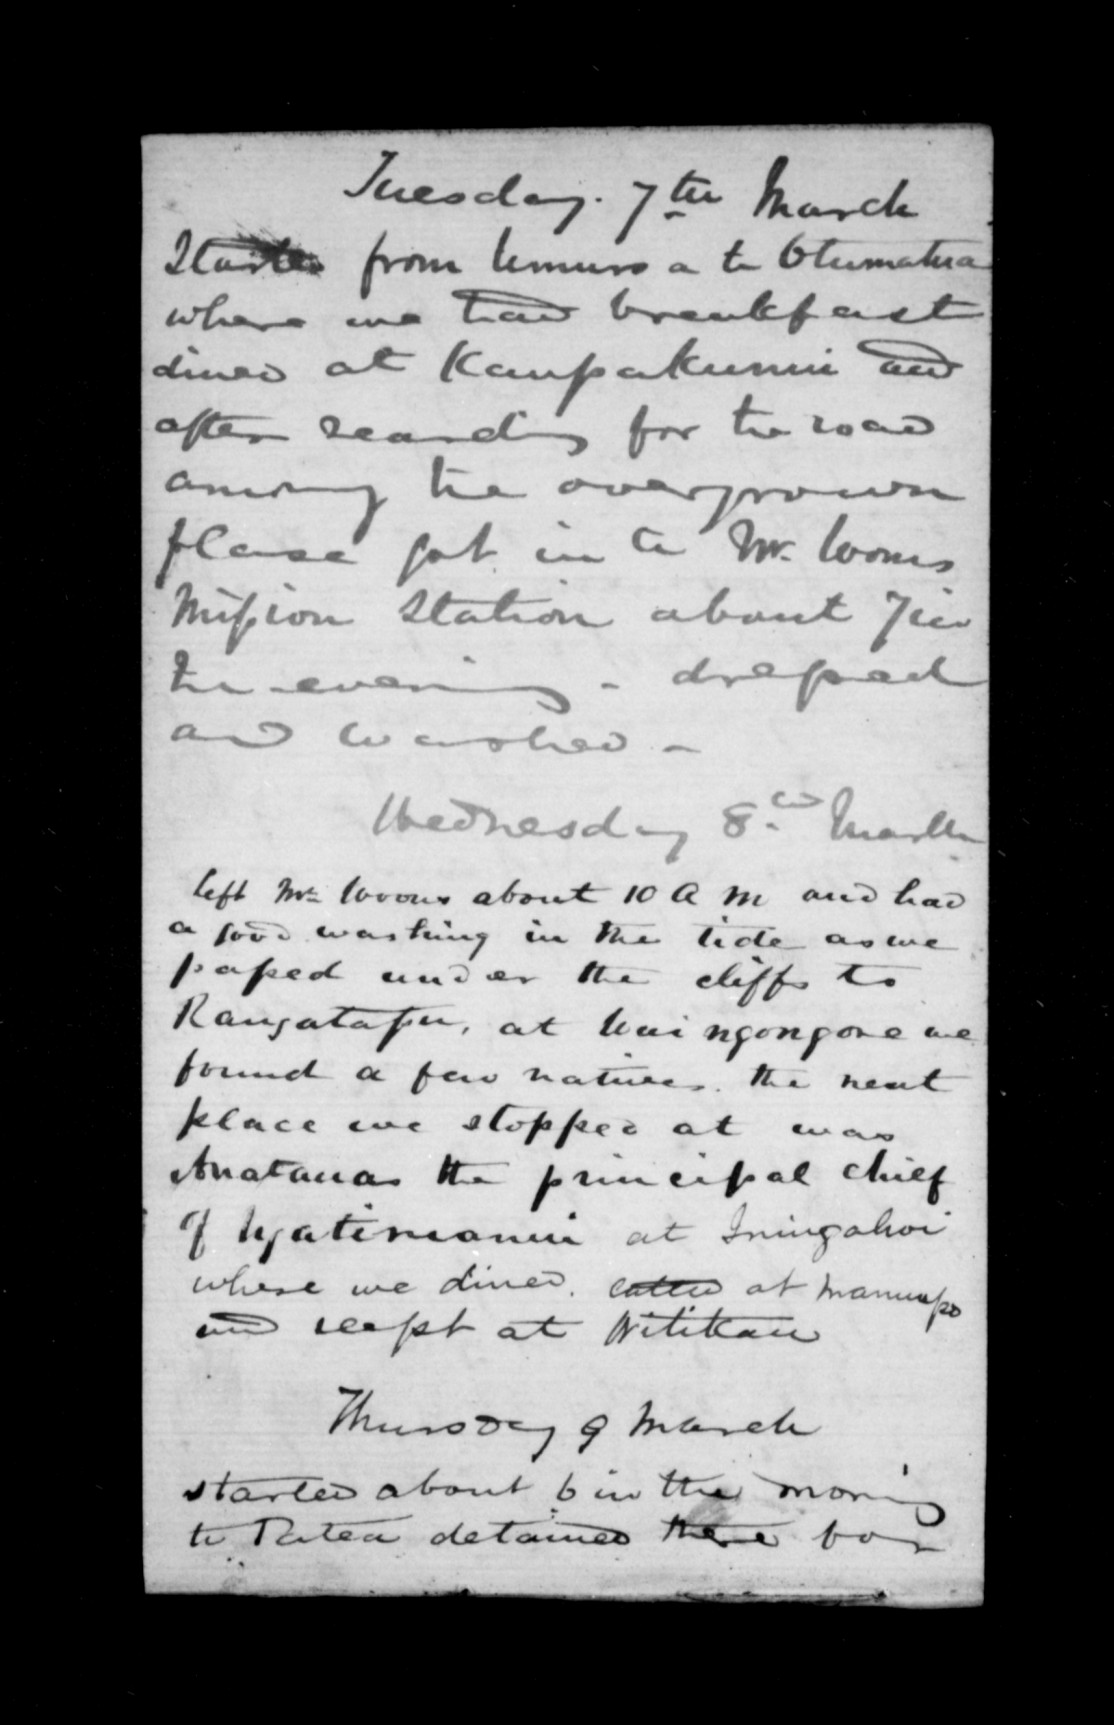 Tuesday. 7th March
Started from Umuroa to Otumatua
where we had breakfast
dined at Kaupakunui and
after searching for the road
among the overgrown
flaxe got in to Mr. Woons
Mission Station about 7 in
the evening - dressed
and washed -
Wednesday 8. March
left Mr Woons about 10 A M and had
a good washing in the tide as we
passed under the cliffs to
Rangatapu, at Waingongoro we
found a few natives. the next
place we stopped at was
the principal chief
of Ngatimanui at Inuingahoi
where we dined. called at Manuapo
and slept at Witikau
Thursday 9 March
started about 6 in the morning
to Patea detained there for